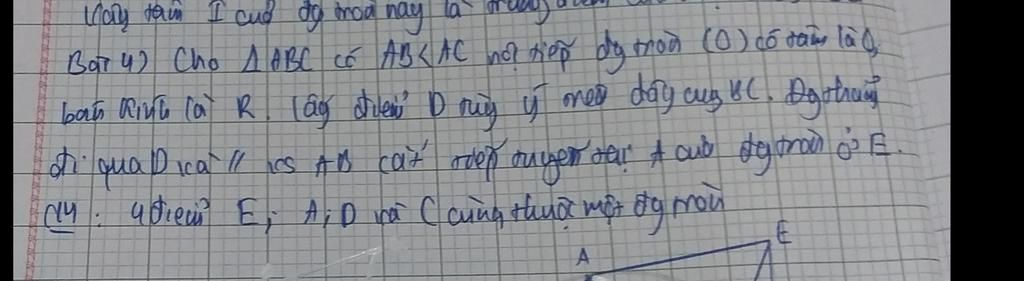 Vậy tâm I của đg tròn này là trung điểm
Bài 4) Cho ΔABC có AB<AC nội tiếp đg tròn (O) có tâm là O,
bán kính là R. Lấy điểm D tùy ý trên dây cung BC. Đg thẳng
đi qua D và // vs AB cắt tiếp tuyến tại A của đg tròn ở E.
CM: 4 điểm E, A, D và C cùng thuộc một đg tròn
A E